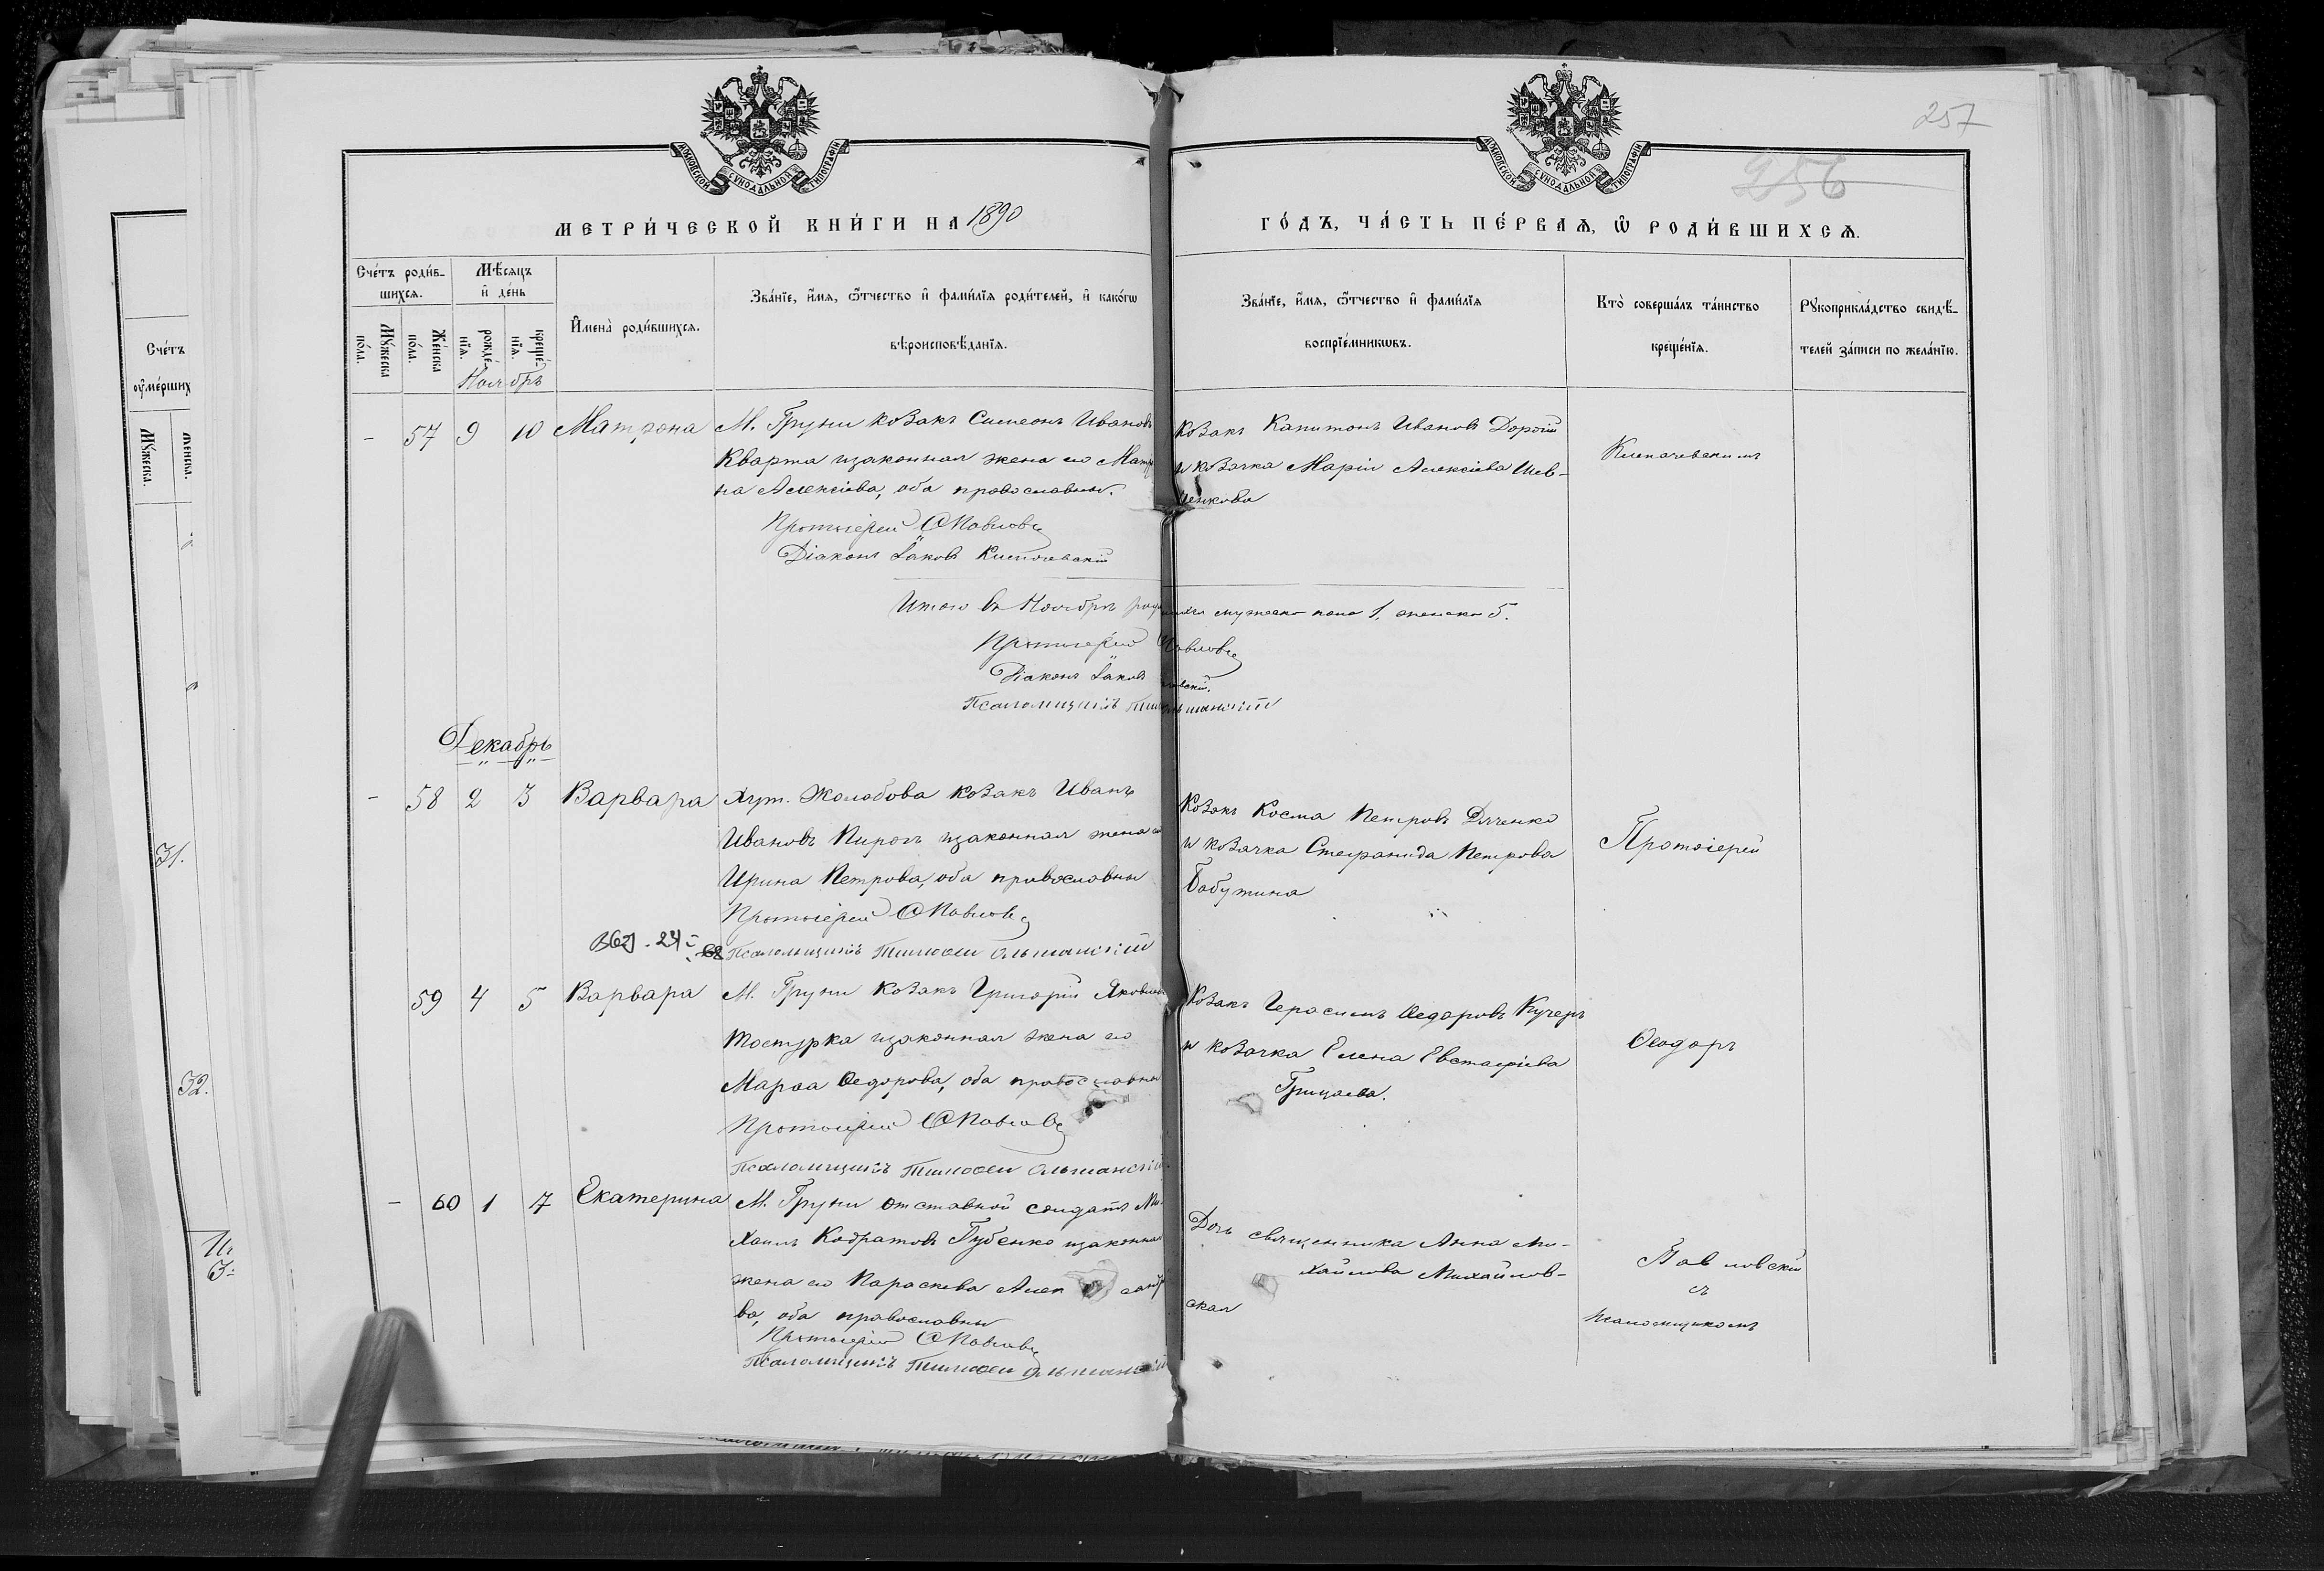 257
256
МОСКОВСКОЙ СУНОДАЛЬНОЙ ТИПОГРАФІИ
МОСКОВСКОЙ СУНОДАЛЬНОЙ ТИПОГРАФІИ
МЕТРИ́ЧЕСКОЙ КНИ́ГИ НА 1890
ГО́ДЪ, ЧА́СТЬ ПЕ́РВАѦ, Ѡ РОДИ́ВШИХСѦ.
Сче́тъ роди́в-
шихсѧ.
Мѣ́сѧцъ
и҆ де́нь
Мꙋ́жеска
по́ла.
Же́нска
по́ла.
рожде́-
нїѧ.
креще́-
нїѧ.
Ноябрь
И҆мена̀ роди́вшихсѧ.
Зва́нїе, и҆́мѧ, ѻ҆́тчество и҆ фами́лїѧ роди́телей, и҆ како́гѡ
вѣроисповѣ́данїѧ.
Зва́нїе, и҆́мѧ, ѻ҆́тчество и҆ фами́лїѧ
воспрїе́мникѡвъ.
Кто̀ соверша́лъ та́инство
креще́нїѧ.
Рꙋкоприкла́дство свидѣ́-
телей за́писи по жела́нїю.
Сче́тъ
ᲂу҆ме́рших
Мꙋ́жеска.
Же́нска.
31.
32.
- 57 9 10 Матрона
М. Груни козакъ Симеонъ Ивановъ
Кварта изаконная жена его Матро
на Алексіева, оба православны.
Протоіерей Ѳ Павловс
Діаконъ Іаковъ
Козакъ Капитонъ Ивановъ Дорогій
и козачка Марія Алексіева Шев-
ченкова
Итого въ Ноябрѣ мужеск пола 1, женска 5.
Протоіерей Ѳ Павловс
Діаконъ Іаковъ
Псаломщикъ
Декабрь
- 58 2 3 Варвара
Хут. Жолобова козакъ Иванъ
Ивановъ Пирогъ изаконная жена его
Ирина Петрова, оба православны
Протоіерей Ѳ Павловс
Псаломщикъ Тимоѳей Ольшанскій
Козакъ Косма Петровъ Дяченко
и козачка Стефанида Петрова
Бабутина
Протоіерей
59 4 5 Варвара
М. Груни козакъ Григорій Яковлевъ
изаконная жена его
Марѳа Ѳедорова, оба православны
Протоіерей Ѳ Павловс
Псаломщикъ Тимоѳей Ольшанскій
Козакъ Герасимъ Ѳедоровъ Кучеръ
и козачка Елена Евстафіева
Грицаева.
Ѳеодоръ
- 60 1 7 Екатерина
М. Груни отставной солдатъ Ми
хаилъ Кодратовъ Губенко изаконная
жена его Параскева Александр
ва, оба православны
Протоіерей Ѳ Павловс
Псаломщикъ Тимоѳей Ольшанскій
Дочь священника Анна Ми-
хайлова Михайлов-
ская
Павловскій
съ
псаломщикомъ